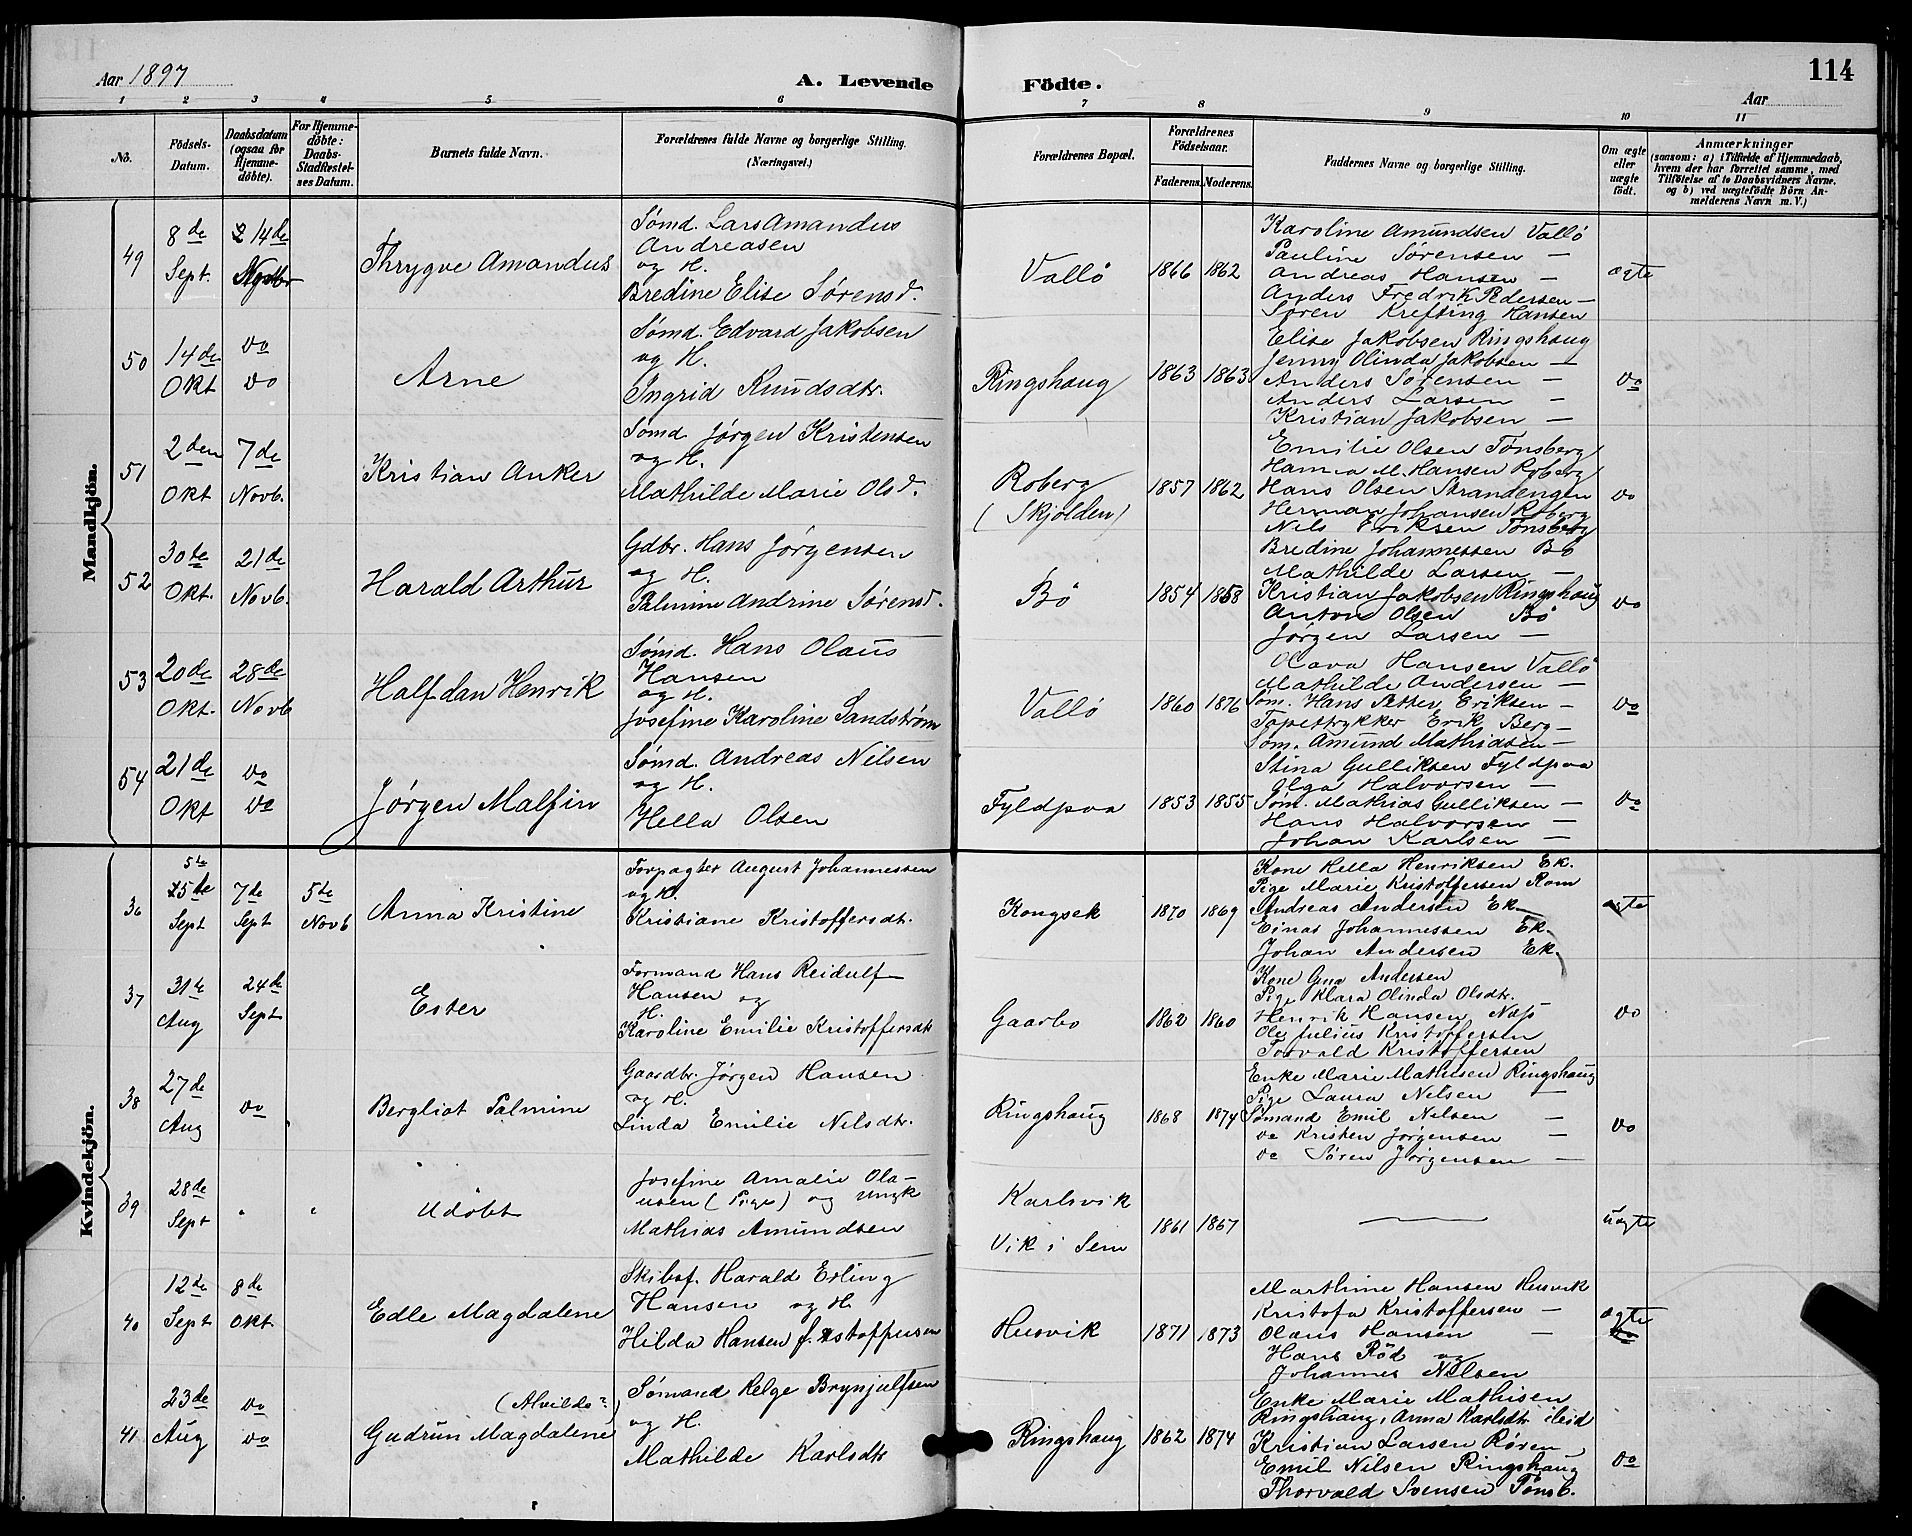 Aar 1897
A. Levende Födte.
114
Aar
1 2 3 4 5 6 7 8 9 10 11
No.
Födsels-Datum.
Daabsdatum (ogsaa for Hjemme-döbte).
For Hjemme-döbte: Daabs-Stadfæstel-ses Datum.
Barnets fulde Navn.
Forældrenes fulde Navne og borgerlige Stilling. (Næringsvei.)
Forældrenes Bopæl.
Forældrenes Födselsaar.
Faderens. Moderens.
Faddernes Navne og borgerlige Stilling.
Om ægte eller uægte födt.
Anmærkninger
(saasom: a) i Tilfælde af Hjemmedaab,
hvem der har forrettet samme, med
Tilföielse af to Daabsvidners Navne,
og b) ved uægtefödte Börn An-
melderens Navn m. V.)
Mandkjön.
49
8de Sept.
14de Novbr
Thrygve Amandus
Sømd. Lars Amandus
Andreasen
og H.
Bredine Elise Sørensd.
Vallö
1866 1862
Karoline Amundsen Vallö
Pauline Sørensen —
Andreas Hansen —
Anders Fredrik Pedersen —
Søren Krefting Hansen
ægte
50
14de Okt
do do
Arne
Sømd. Edvard Jakobsen
og H.
Ingrid Knudsdtr.
Ringshaug
1863 1863
Elise Jakobsen Ringshaug
Jenny Olinda Jakobsen —
Anders Sørensen —
Anders Larsen —
Kristian Jakobsen —
do
51
2den Okt
7de Novb.
Kristian Anker
Sømd. Jørgen Kristensen
og H.
Mathilde Marie Olsd.
Roberg
(Skjölden)
1857 1862
Emilie Olsen Tønsberg
Hanna M. Hansen Roberg
Hans Olsen Strandengen
Herman Johansen Roberg
Nils Eriksen Tønsberg
do
52
30te Okt.
21de Novb.
Harald Arthur
Gdbr. Hans Jørgensen
og H.
Palmine Andrine Sørensd.
Bö
1854 1858
Bredine Johannessen Bö
Mathilde Larsen —
Kristian Jakobsen Ringshaug
Anton Olsen Bö
Jørgen Larsen —
do
53
20de Okt.
28de Novb
Halfdan Henrik
Sømd. Hans Olaus
Hansen
og H.
Josefine Karoline Sandstrøm
Vallö
1860 1876
Olava Hansen Vallö
Mathilde Andersen —
Søm. Hans Petter Eriksen —
Tapettrykker Erik Berg —
Søm. Amund Mathiasen —
do
54
21de Okt
do do
Jørgen Malfin
Sømd. Andreas Nilsen
og H.
Hella Olsen
Fyldpaa
1853 1855
Stina Gulliksen Fyldpaa
Olga Halvorsen —
Søm. Mathias Gulliksen —
Hans Halvorsen —
Johan Karlsen —
do
Kvindekjön.
36
5te
5te Sept
7de Sept
5te Novb
Anna Kristine
Forpagter August Johannessen
og H.
Kristiane Kristoffersdt.
Kongsek
1870 1869
Kone Hella Henriksen Ek.
Pige Marie Kristoffersen Rom
Andreas Andersen Ek
Einar Johannessen Ek.
Johan Andersen Ek.
ægte
37
31te Aug
24de Sept
Ester
Formand Hans Reidulf
Hansen og
H.
Karoline Emilie Kristoffersdt
Gaarbo
1862 1860
Kone Gina Andersen
Pige Klara Olinda Olsdtr.
Henrik Hansen Næs
Ole Julius Kristoffersen
Torvald Kristoffersen
do
38
27de Aug
do
Bergliot Palmine
Gaardbr. Jørgen Hansen
og H.
Linda Emilie Nilsdtr.
Ringshaug
1868 1874
Enke Marie Mathisen Ringshaug
Pige Laura Nilsen —
Sømand Emil Nilsen —
do Kristen Jørgensen —
do Søren Jørgensen —
do
39
28de Sept
Udöbt
Josefine Amalie Ola-
usen (Pige) og Ungk
Mathias Amundsen
Karlsvik
Vik i Sem
1861 1867
uægte
40
12de Sept
8de Okt.
Edle Magdalene
Skibsf. Harald Erling
Hansen og H.
Hilda Hansen f.
Husvik
1871 1873
Marthine Hansen Husvik
Kristofa Kristoffersen —
Olaus Hansen —
Hans Röd og
Johannes Nilsen
ægte
do
41
23de Aug
do do
(Alvilde?)
Gudrun Magdalene
Sømand Helge Brynjulfsen
og H.
Mathilde Karlsdtr
Ringshaug
1862 1874
Enke Marie Mathisen
Ringshaug, Anna Karlsdtr. ibid
Kristian Larsen Røren
Emil Nilsen Ringshaug
Thorvald Svensen Tønsb.
do